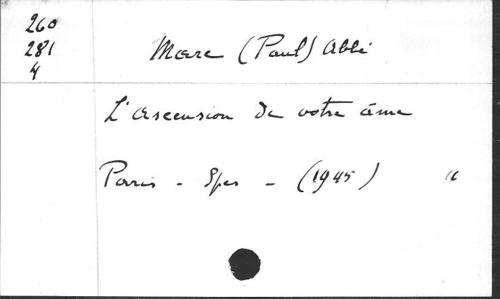 260
281
4
Marc (Paul) Abbé
L'Ascension de votre âme
Paris - Spes - (1945)